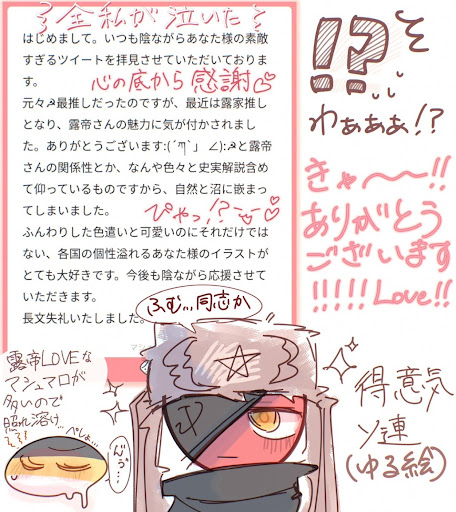 全私が泣いた
はじめまして。いつも陰ながらあなた様の素敵
すぎるツイートを拝見させていただいておりま
す。
心の底から感謝
元々☭最推しだったのですが、最近は露家推し
となり、露帝さんの魅力に気が付かされまし
た。ありがとうございます:(´ཀ`」 ∠):☭と露帝
さんの関係性とか、なんや色々と史実解説含め
て仰っているものですから、自然と沼に嵌まっ
てしまいました。
ぴゃっ!?
ふんわりした色遣いと可愛いのにそれだけでは
ない、各国の個性溢れるあなた様のイラストが
とても大好きです。今後も陰ながら応援させて
いただきます。
長文失礼いたしました。
!?
わぁぁぁ!?
きゃ〜〜!!
ありがとう
ございます
!!!!!Love!!
ふむ,,,同志か
露帝LOVEな
マシュマロが
多いので
照れ溶け
ぺしょ...
得意気
ソ連
(ゆる絵)